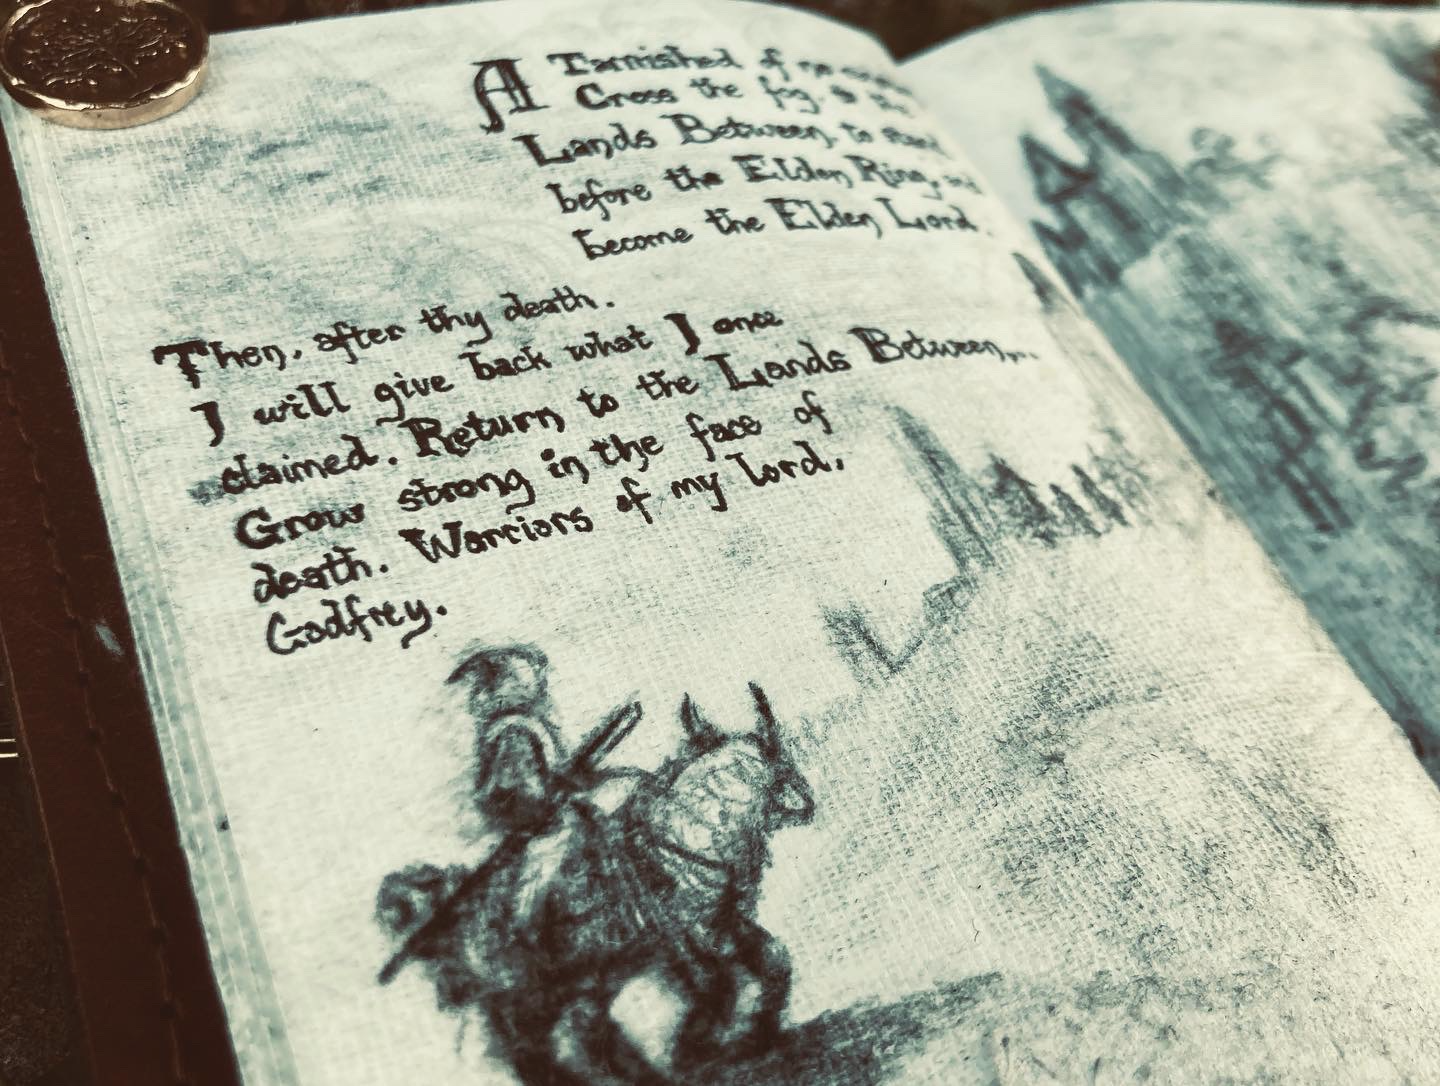 A Tarnished of no
Cross the fog, to the
Lands Between, to stand
before the Elden Ring, and
become the Elden Lord.
Then, after thy death.
I will give back what I once
claimed. Return to the Lands Between,...
Grow strong in the face of
death. Warriors of my lord.
Godfrey.